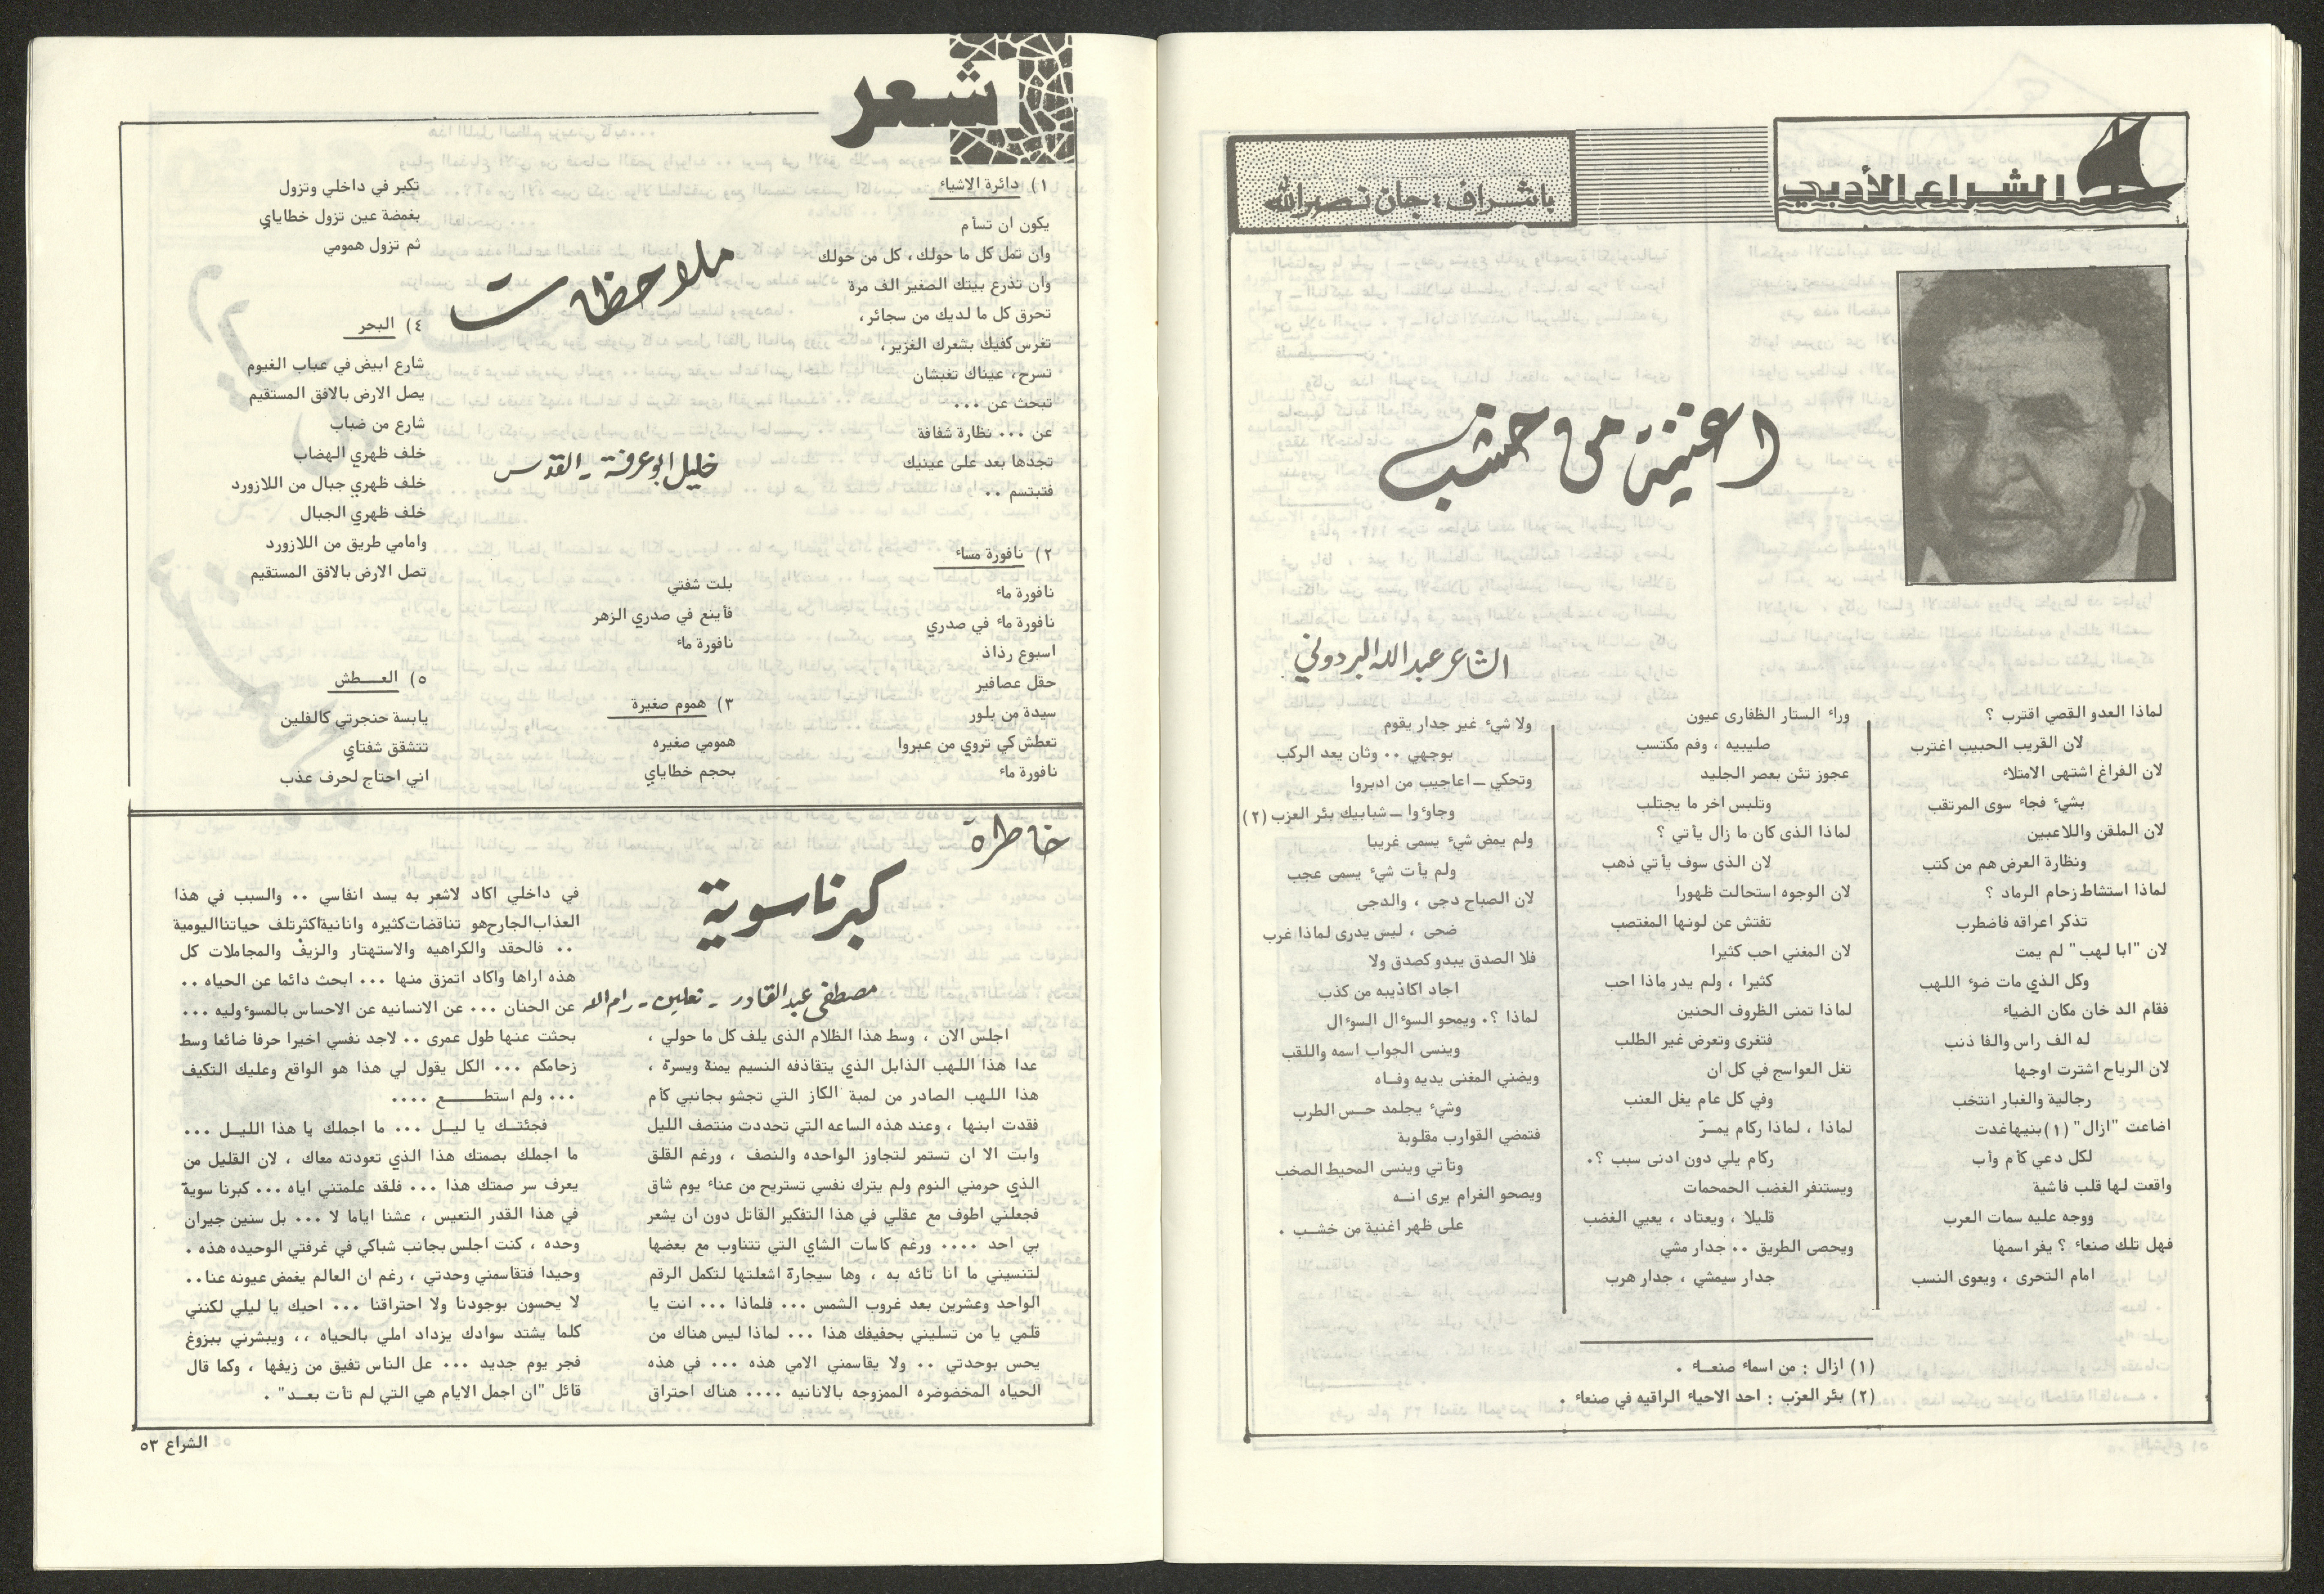 الشراع الأدبي
باشراف : جان نصرالله
اغنية من خشب
الشاعر عبدالله البردوني
لماذا العدو القصي اقترب ؟
لان القريب الحبيب اغترب
لان الفراغ اشتهى الامتلاء
بشيء فجاء سوى المرتقب
لان الملقن واللاعبين
ونظارة العرض هم من كتب
لماذا استشاط زحام الرماد ؟
تذكر اعراقه فاضطرب
لان "ابا لهب" لم يمت
وكل الذي مات ضوء اللهب
فقام الد خان مكان الضياء
له الف راس والفا ذنب
لان الرياح اشترت اوجها
رجالية والغبار انتخب
اضاعت "ازال" (١) بنيهاغدت
لكل دعي كأم وأب
واقعت لها قلب فاشية
ووجه عليه سمات العرب
فهل تلك صنعاء ؟ يفر اسمها
امام التحرى ، ويعوى النسب
وراء الستار الظفارى عيون
صليبيه ، وفم مكتسب
عجوز تئن بعصر الجليد
وتلبس اخر ما يجتلب
لماذا الذى كان ما زال يأتي ؟
لان الذى سوف يأتي ذهب
لان الوجوه استحالت ظهورا
تفتش عن لونها المغتصب
لان المغني احب كثيرا
كثيرا ، ولم يدر ماذا احب
لماذا تمنى الظروف الحنين
فتغرى وتعرض غير الطلب
تغل العواسج في كل ان
وفي كل عام يغل العنب
لماذا ، لماذا ركام يمـرّ
ركام يلي دون ادنى سبب ؟.
ويستنفر الغضب الحمحمات
قليلا ، ويعتاد ، يعيي الغضب
ويحصى الطريق .. جدار مشي
جدار سيمشي ، جدار هرب
ولا شيء غير جدار يقوم
بوجهي .. وثان يعد الركب
وتحكي ــ اعاجيب من ادبروا
وجاوءوا ــ شبابيك بئر العزب (٢)
ولم يمض شيء يسمى غريبا
ولم يأت شيء يسمى عجب
لان الصباح دجى ، والدجى
ضحى ، ليس يدرى لماذا غرب
فلا الصدق يبدو كصدق ولا
اجاد اكاذيبه من كذب
لماذا ؟. ويمحو السوءال السوءال
وينسى الجواب اسمه واللقب
ويضني المغنى يديه وفـاه
وشيء يجلمد حـس الطرب
فتمضي القوارب مقلوبة
وتأتي وينسى المحيط الصخب
ويصحو الغرام يرى انـه
على ظهر اغنية من خشـب .
(١) ازال : من اسماء صنعـاء .
(٢) بئر العزب : احد الاحياء الراقيه في صنعاء .
شعر
ملاحظات
خليل ابو عرفة - القدس
١) دائرة الاشياء
يكون ان تسأم
وان تمل كل ما حولك ، كل من حولك
وان تذرع بيتك الصغير الف مرة
تحرق كل ما لديك من سجائر ،
تغرس كفيك بشعرك الغزير ،
تسرح ، عيناك تغبشان
تبحث عن ...
عن ... نظارة شفافة
تجدها بعد على عينيك
فتبتسم ..
٢) نافورة مساء
نافورة ماء
نافورة ماء في صدري
اسبوع رذاذ
حقل عصافير
سيدة من بلور
تعطش كي تروي من عبروا
نافورة ماء
بلت شفتي
فأينع في صدري الزهر
نافورة ماء
٣) هموم صغيرة
همومي صغيره
بحجم خطاياي
تكبر في داخلي وتزول
بغمضة عين تزول خطاياي
ثم تزول همومي
٤) البحر
شارع ابيض في عباب الغيوم
يصل الارض بالافق المستقيم
شارع من ضباب
خلف ظهري الهضاب
خلف ظهري جبال من اللازورد
خلف ظهري الجبال
وامامي طريق من اللازورد
تصل الارض بالافق المستقيم
٥) العــطش
يابسة حنجرتي كالفلين
تتشقق شفتاي
اني احتاج لحرف عذب
خاطرة
كبرنا سوية
مصطفى عبدالقادر - نعلين - رام الله
اجلس الان ، وسط هذا الظلام الذى يلف كل ما حولي ،
عدا هذا اللهب الذابل الذي يتقاذفه النسيم يمنة ويسرة ،
هذا اللهب الصادر من لمبة الكاز التي تجشو بجانبي كأم
فقدت ابنها ، وعند هذه الساعه التي تحددت منتصف الليل
وابت الا ان تستمر لتجاوز الواحده والنصف ، ورغم القلق
الذي حرمني النوم ولم يترك نفسي تستريح من عناء يوم شاق
فجعلني اطوف مع عقلي في هذا التفكير القاتل دون ان يشعر
بي احد .... ورغم كاسات الشاي التي تتناوب مع بعضها
لتنسيني ما انا تائه به ، وها سيجارة اشعلتها لتكمل الرقم
الواحد وعشرين بعد غروب الشمس ... فلماذا ... انت يا
قلمي يا من تسليني بحفيفك هذا ... لماذا ليس هناك من
يحس بوحدتي .. ولا يقاسمني الامي هذه ... في هذه
الحياه المخضوضره الممزوجه بالانانيه .... هناك احتراق
في داخلي اكاد لاشعر به يسد انفاسي .. والسبب في هذا
العذاب الجارح هو تناقضات كثيره وانانية اكثر تلف حياتنا اليومية
.. فالحقد والكراهيه والاستهتار والزيف والمجاملات كل
هذه اراها واكاد اتمزق منها ... ابحث دائما عن الحياه ..
عن الحنان ... عن الانسانيه عن الاحساس بالمسوءوليه ...
بحثت عنها طول عمرى .. لاجد نفسي اخيرا حرفا ضائعا وسط
زحامكم ... الكل يقول لي هذا هو الواقع وعليك التكيف
... ولم استطــــع ....
فجئتــك يا ليــل ... ما اجملك يا هذا الليـل ...
ما اجملك بصمتك هذا الذي تعودته معاك ، لان القليل من
يعرف سر صمتك هذا ... فلقد علمتني اياه ... كبرنا سوية
في هذا القدر التعيس ، عشنا اياما لا ... بل سنين جيران
وحده ، كنت اجلس بجانب شباكي في غرفتي الوحيده هذه .
وحيدا فتقاسمني وحدتي ، رغم ان العالم يغمض عيونه عنا..
لا يحسون بوجودنا ولا احتراقنا ... احبك يا ليلي لكنني
كلما يشتد سوادك يزداد املي بالحياه ،، ويبشرني ببزوغ
فجر يوم جديد ... عل الناس تفيق من زيفها ، وكما قال
قائل "ان اجمل الايام هي التي لم تات بعــد" .
الشراع ٥٣